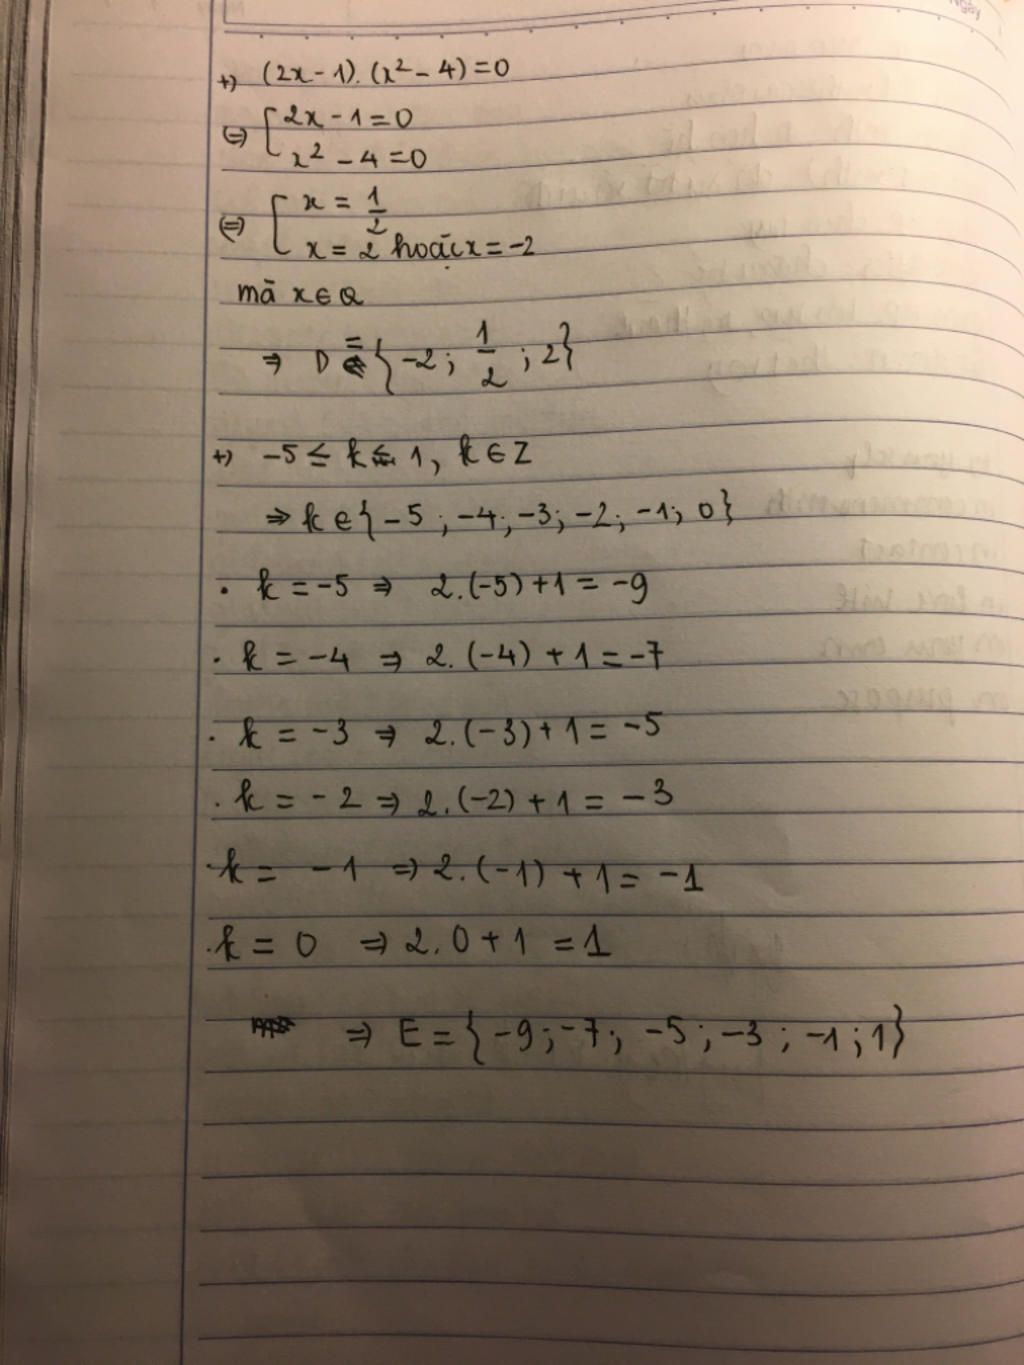 +) (2x - 1). (x² - 4) = 0
⇔ [ 2x - 1 = 0
x² - 4 = 0
⇔ [ x = 1/2
x = 2 hoặc x = -2
mà x ∈ Q
⇒ D = {-2; 1/2; 2}
+) -5 ≤ k ≤ 1, k ∈ Z
⇒ k ∈ {-5; -4; -3; -2; -1; 0}
. k = -5 ⇒ 2.(-5) + 1 = -9
. k = -4 ⇒ 2.(-4) + 1 = -7
. k = -3 ⇒ 2.(-3) + 1 = -5
. k = -2 ⇒ 2.(-2) + 1 = -3
. k = -1 ⇒ 2.(-1) + 1 = -1
. k = 0 ⇒ 2.0 + 1 = 1
⇒ E = {-9; -7; -5; -3; -1; 1}